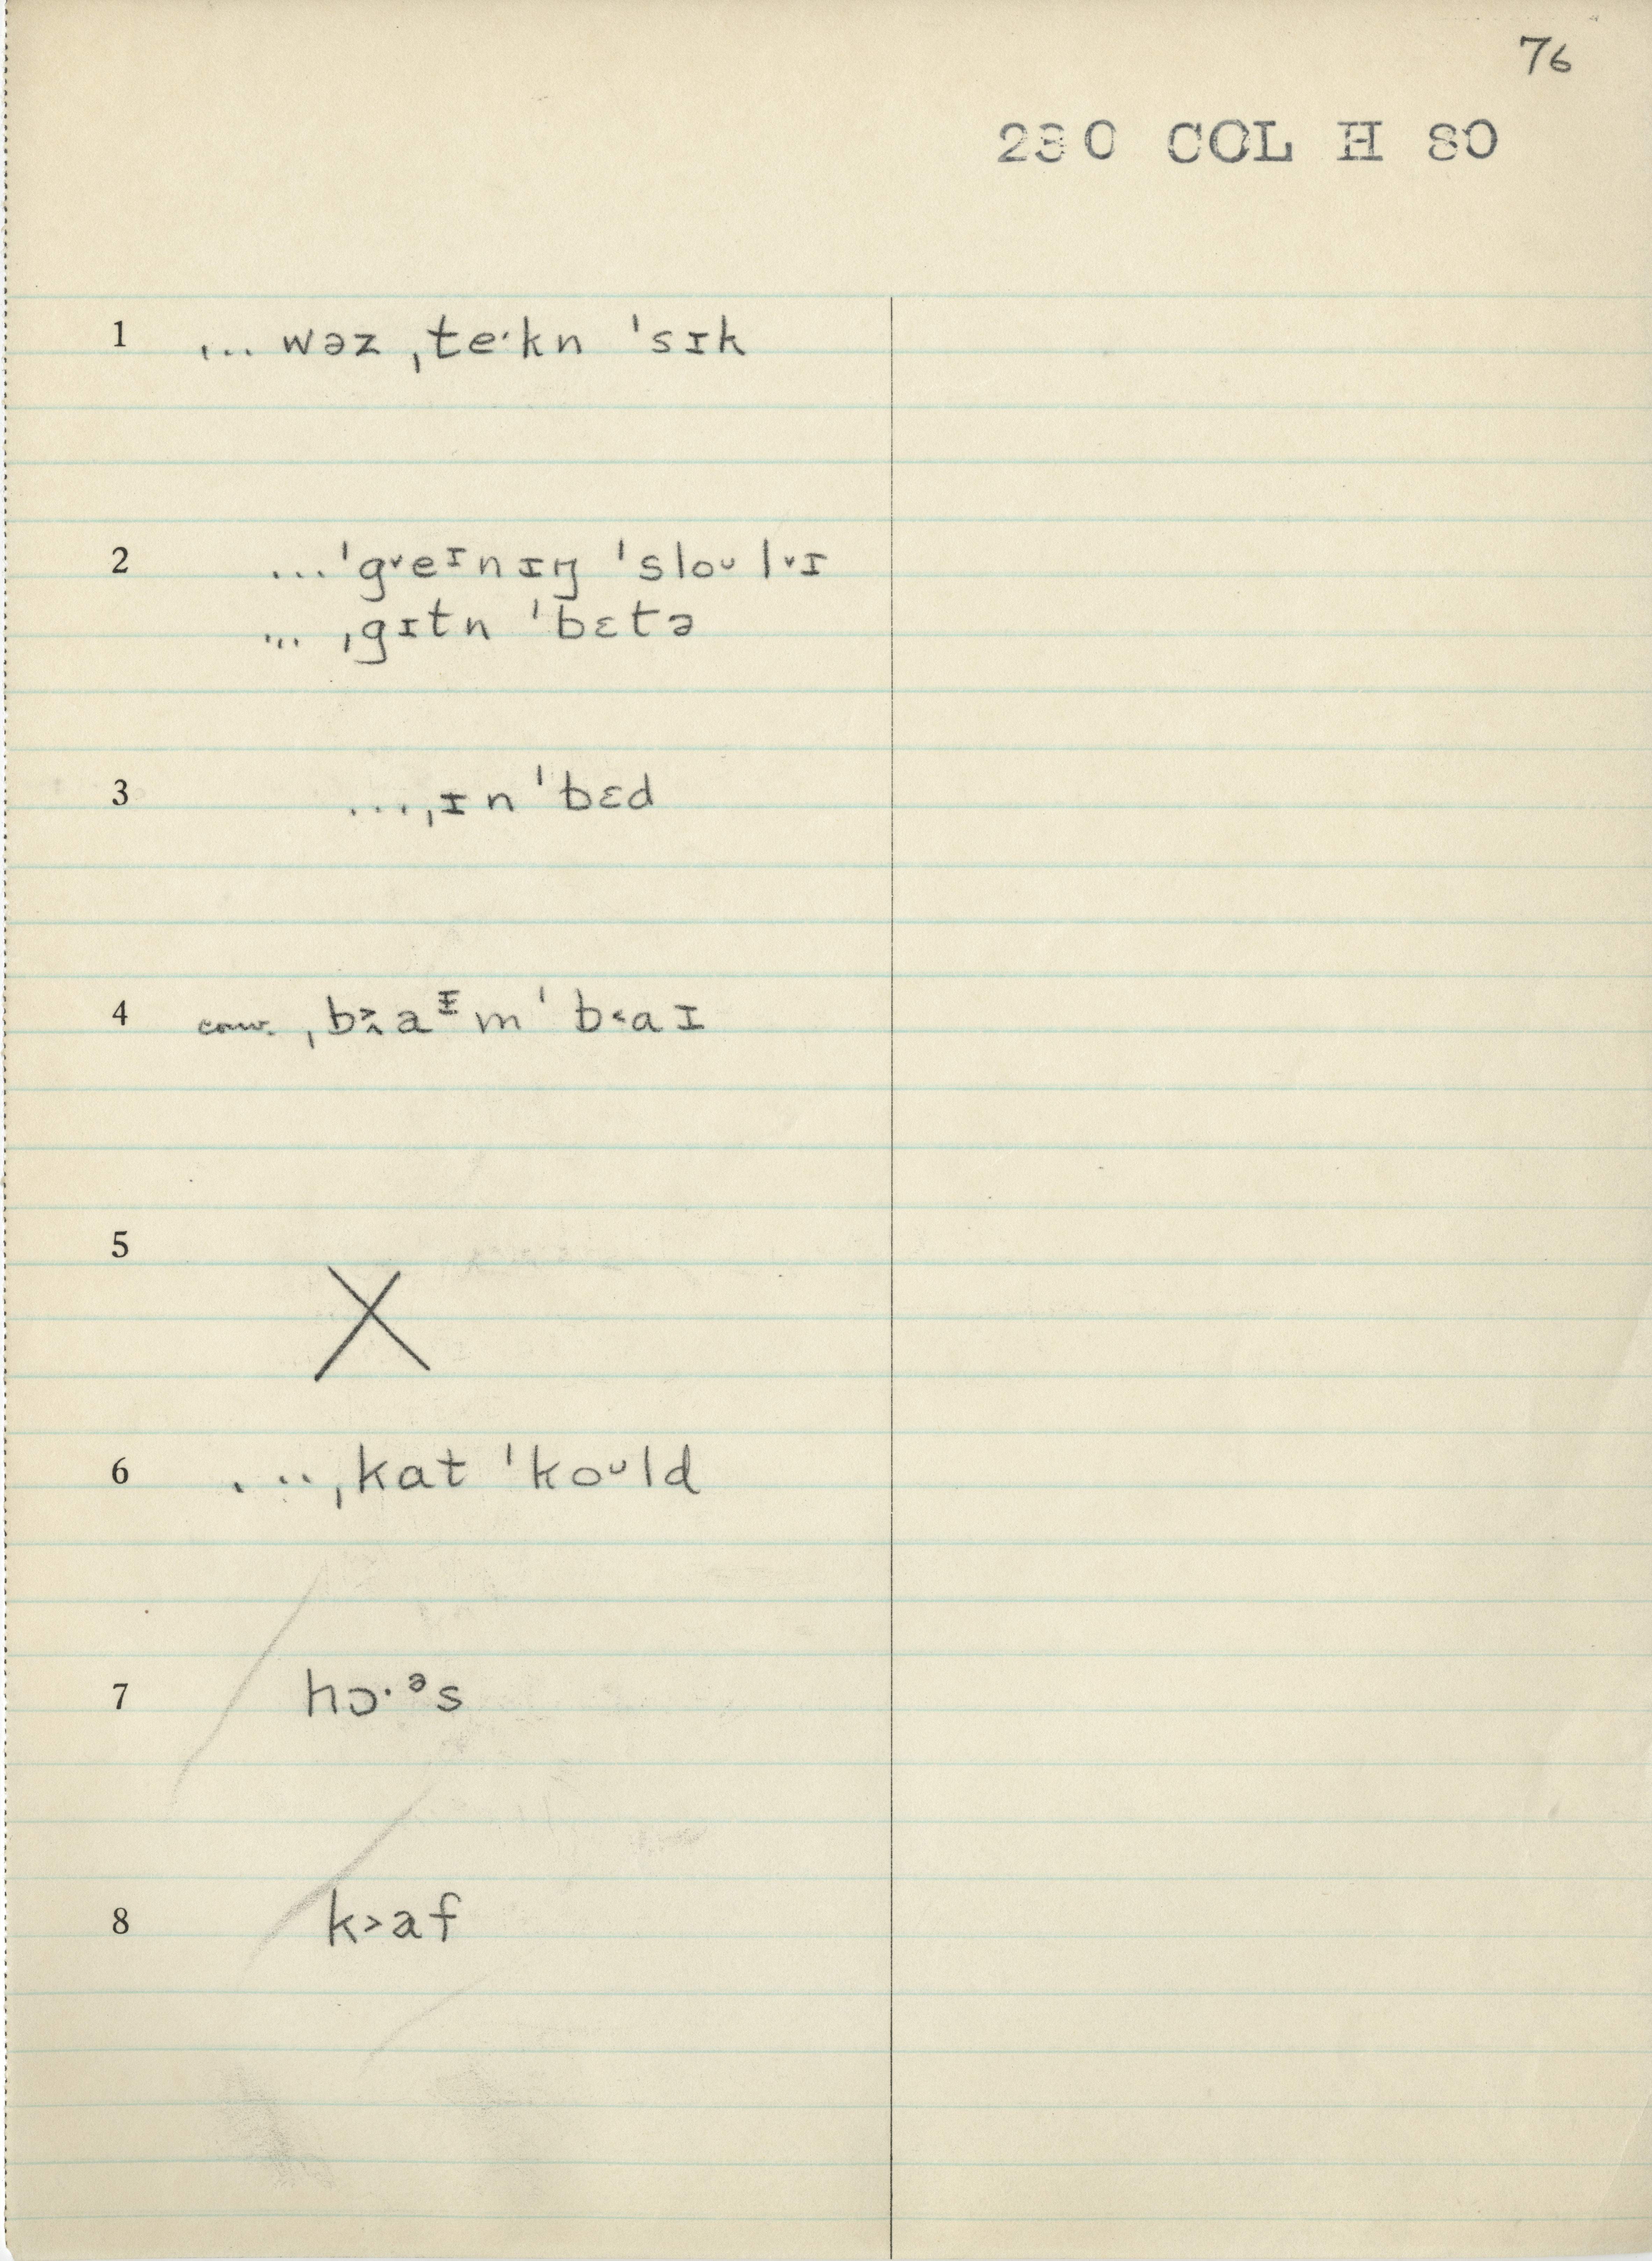 76
230 COL H 80
1 ... wəz ˌteˑkn ˈsɪk
2 ...ˈg˅eᶦnɪŋ ˈsloᴗl˅ɪ
... ˌgɪtn ˈbɛtə
3 ...ˌɪn ˈbɛd
4 conv. ˌb˃aᶦm ˈb˂aɪ
5 X
6 ...ˌkat ˈkoᴗld
7 hɔˑᵊs
8 k˃af